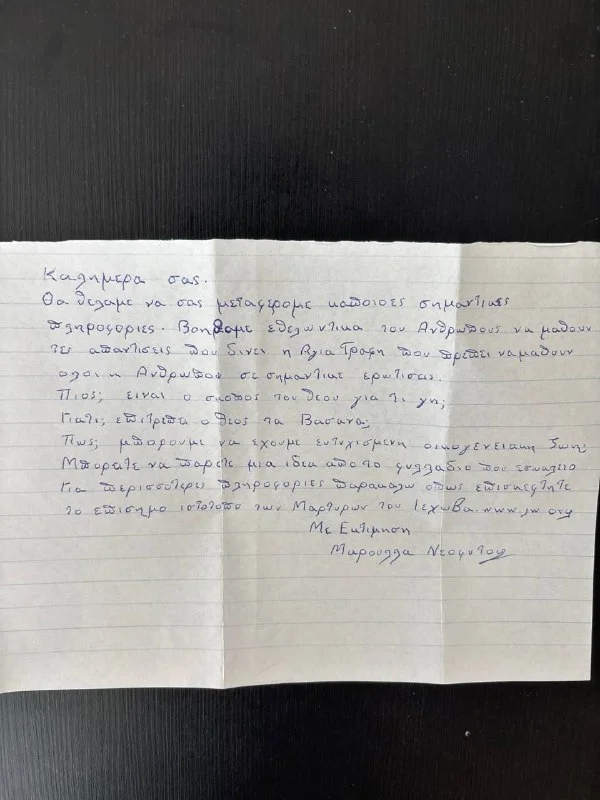 Καλημερα σας.
Θα θελαμε να σας μεταφερομε καποιοες σημαντικες
πληροφοριες. Βοηθαμε εθελωντικα του Ανθρωπους να μαθουν
τες απαντισεις που δινει η Αγια Γραφη που πρεπει να μαθουν
ολοι η Ανθρωποι σε σημαντικες ερωτισεις.
Πιος; ειναι ο σκοπος του θεου για τι γη;
Γιατι; επιτρεπει ο θεος τα Βασανα;
Πως; μπορουμε να εχουμε ευτυχισμενη οικογενειακη ζωη;
Μπορειτε να παρετε μια ιδεα απο το φυλλαδιο που εσωκλειο
Για περισσοτερες πληροφοριες παρακαλω οπως επισκεφτητε
το επισημο ιστοτοπο των Μαρτυρων του Ιεχωβα. www.jw.org
Με Εκτιμηση
Μαρουλλα Νεοφυτου